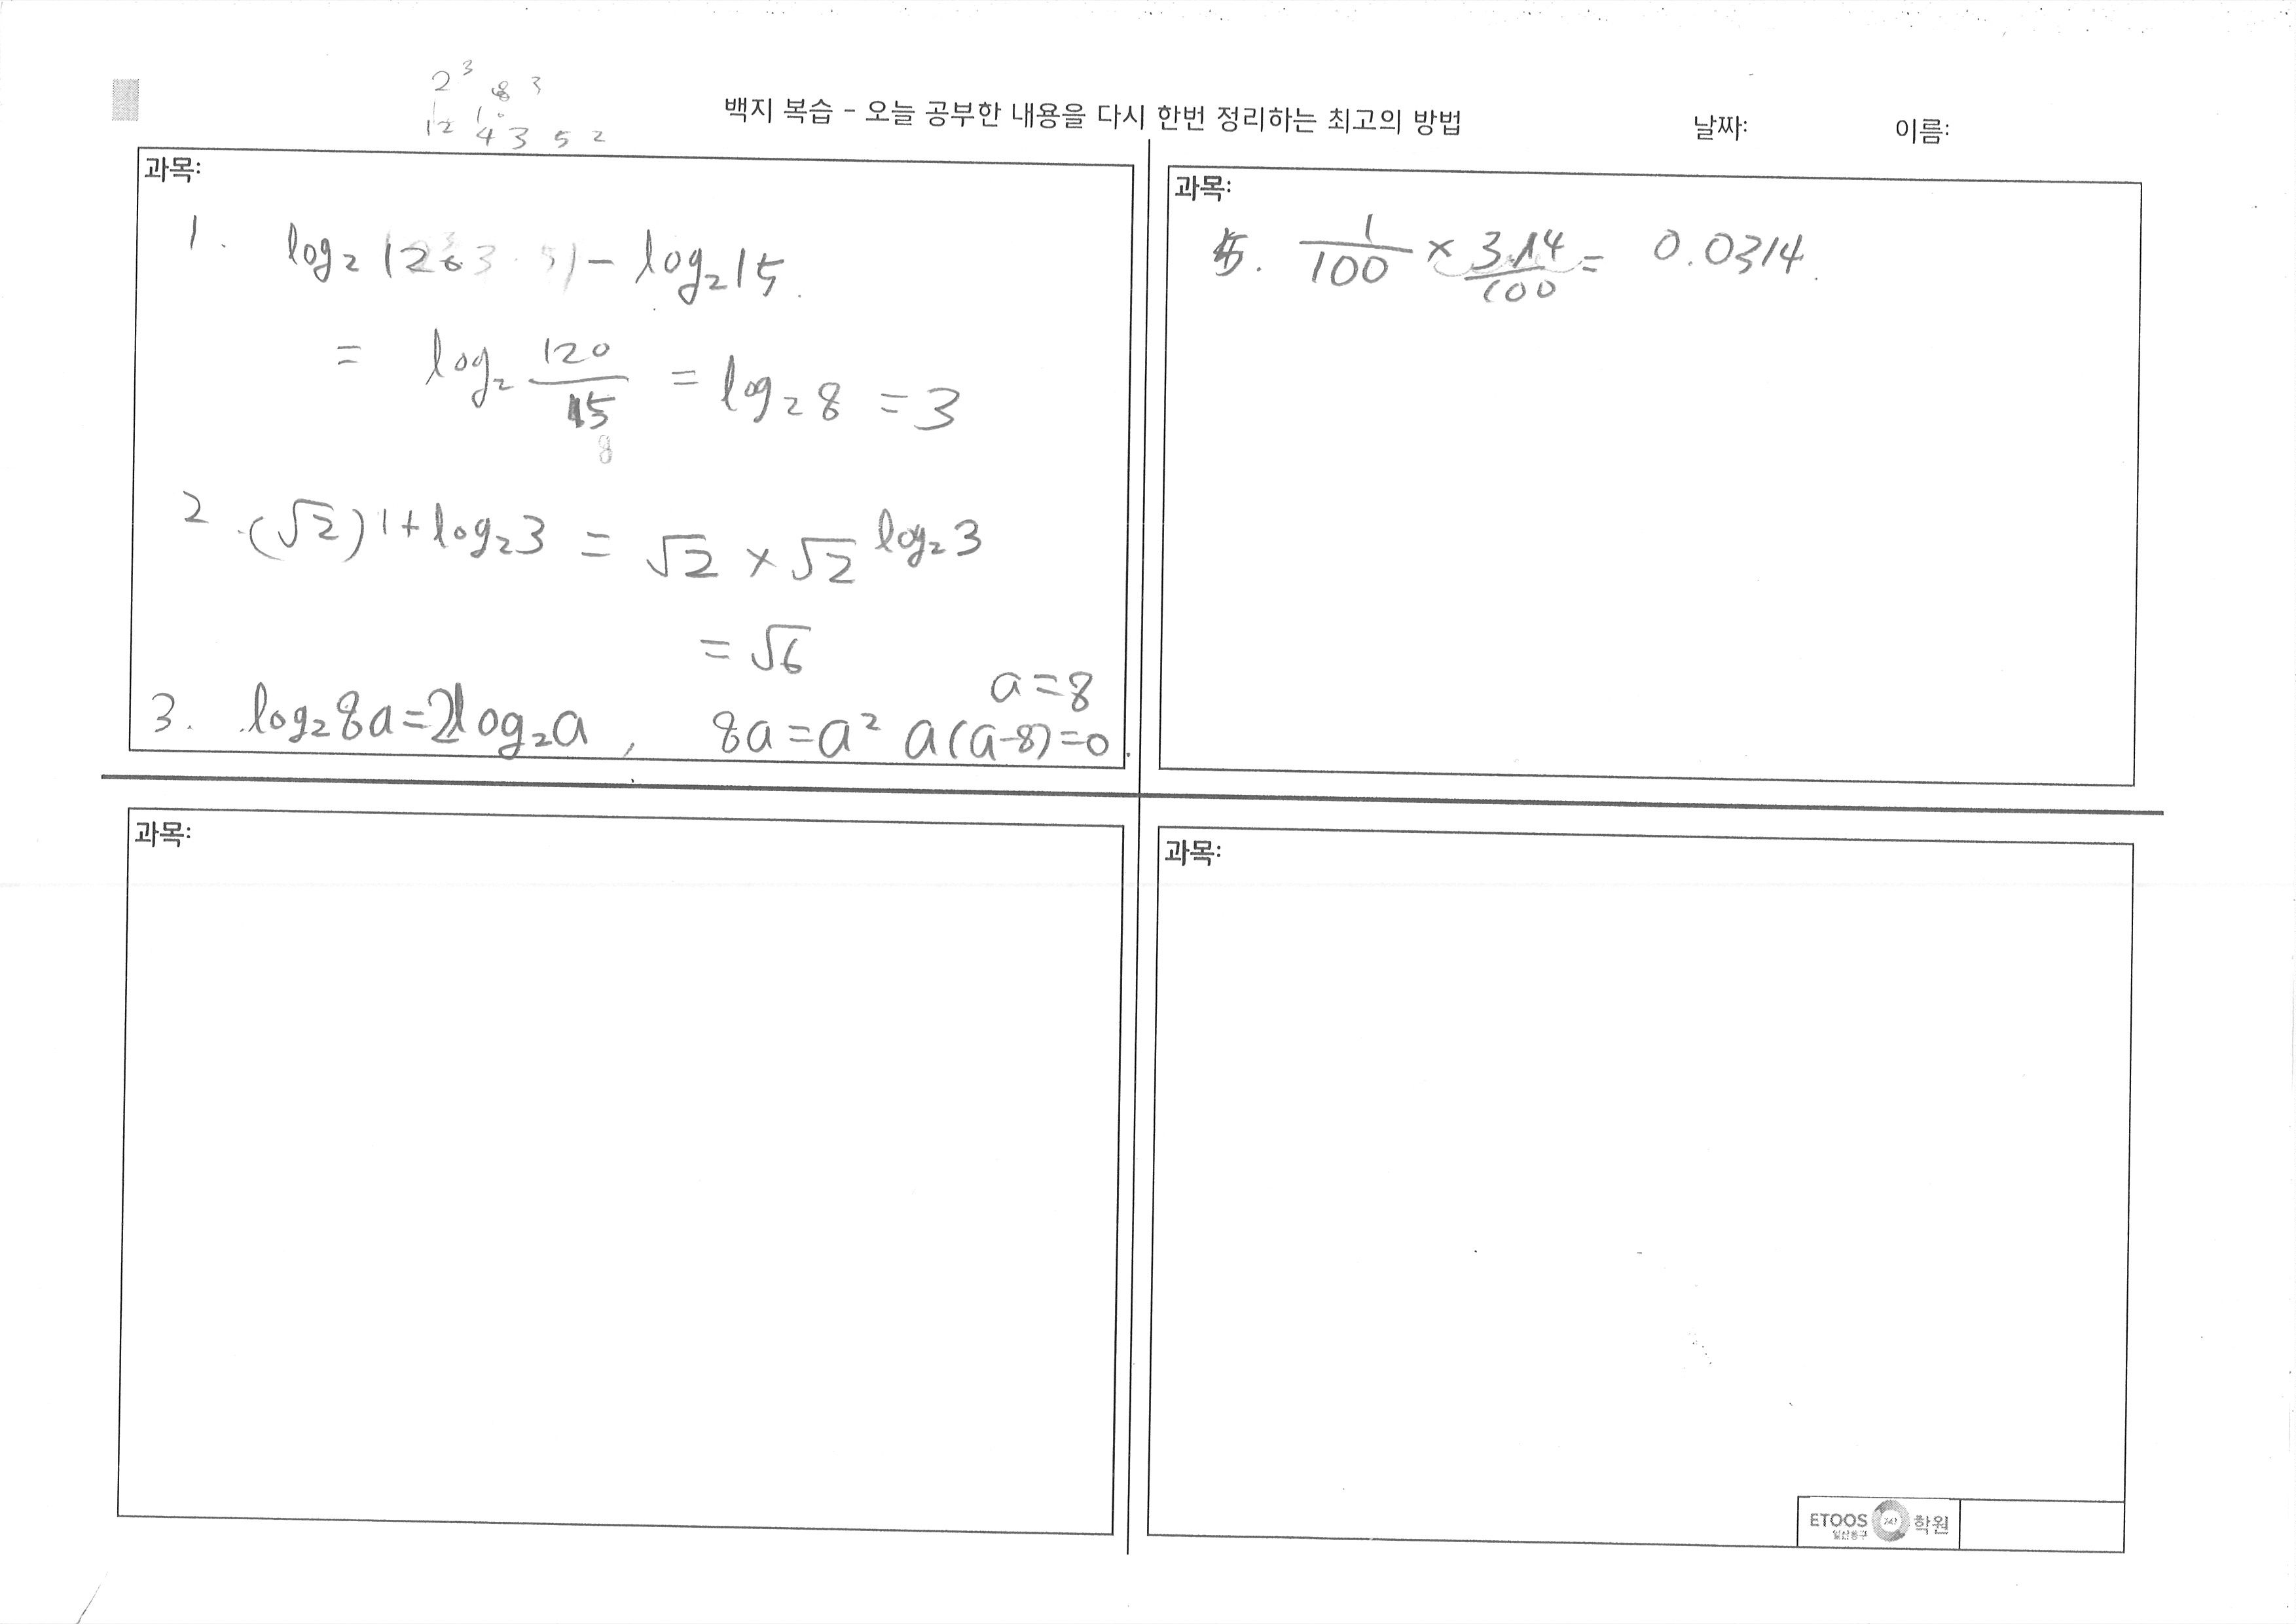 2³ 8 3
12 4 3 5 2
백지 복습 - 오늘 공부한 내용을 다시 한번 정리하는 최고의 방법
날짜:
이름:
과목:
1. log₂ 120 - log₂15.
= log₂ 120/15 = log₂8 = 3
8
2. (√2)^(1+log₂3) = √2 × √2^(log₂3)
= √6
a=8
3. log₂8a=2log₂a, 8a=a² a(a-8)=0.
과목:
5. 1/100 × 3.14/100 = 0.0314.
과목:
과목:
ETOOS 247 학원
일산동구